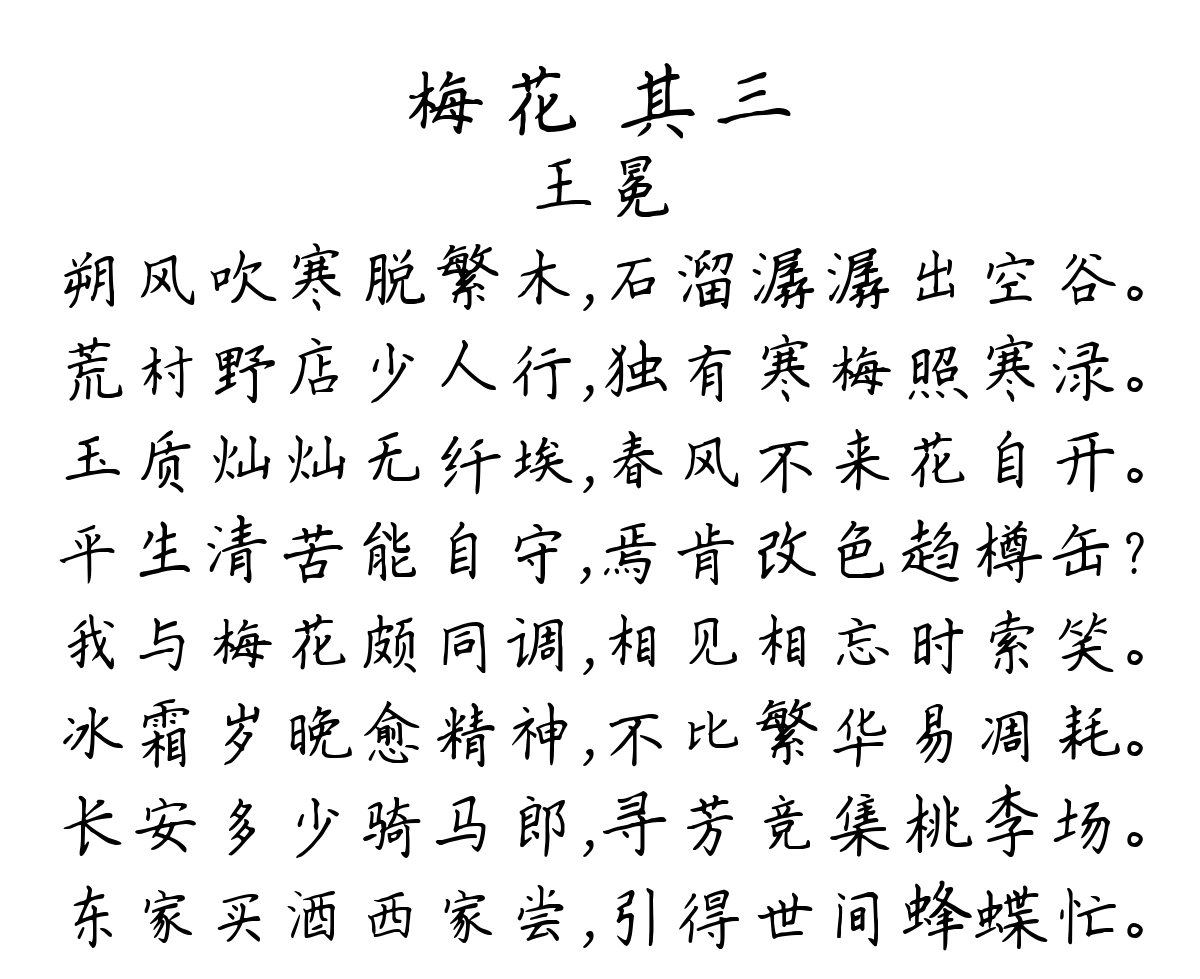 梅花 其三
王冕
朔风吹寒脱繁木,石溜潺潺出空谷。
荒村野店少人行,独有寒梅照寒渌。
玉质灿灿无纤埃,春风不来花自开。
平生清苦能自守,焉肯改色趋樽缶?
我与梅花颇同调,相见相忘时索笑。
冰霜岁晚愈精神,不比繁华易凋耗。
长安多少骑马郎,寻芳竞集桃李场。
东家买酒西家尝,引得世间蜂蝶忙。